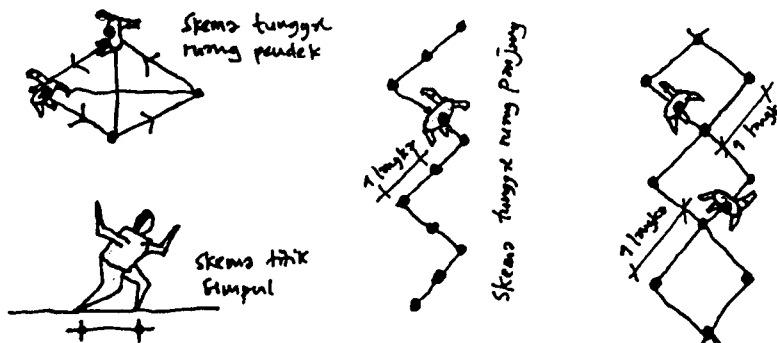 Skema tunggal
ruang pendek
Skema titik
simpul
1 langkah
Skema tunggal ruang panjang
1 langkah
1 langkah